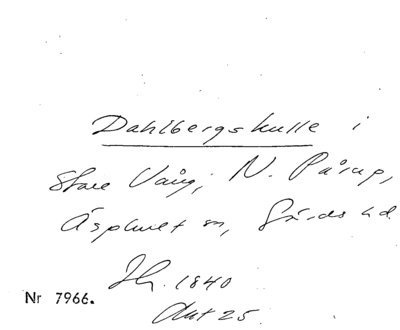 Dahlbergskulle i
Stora Vång, N. Pårup,
Äsphult sn, Gärds hd.
Jh. 1840
Nr 7966.
Ant 25